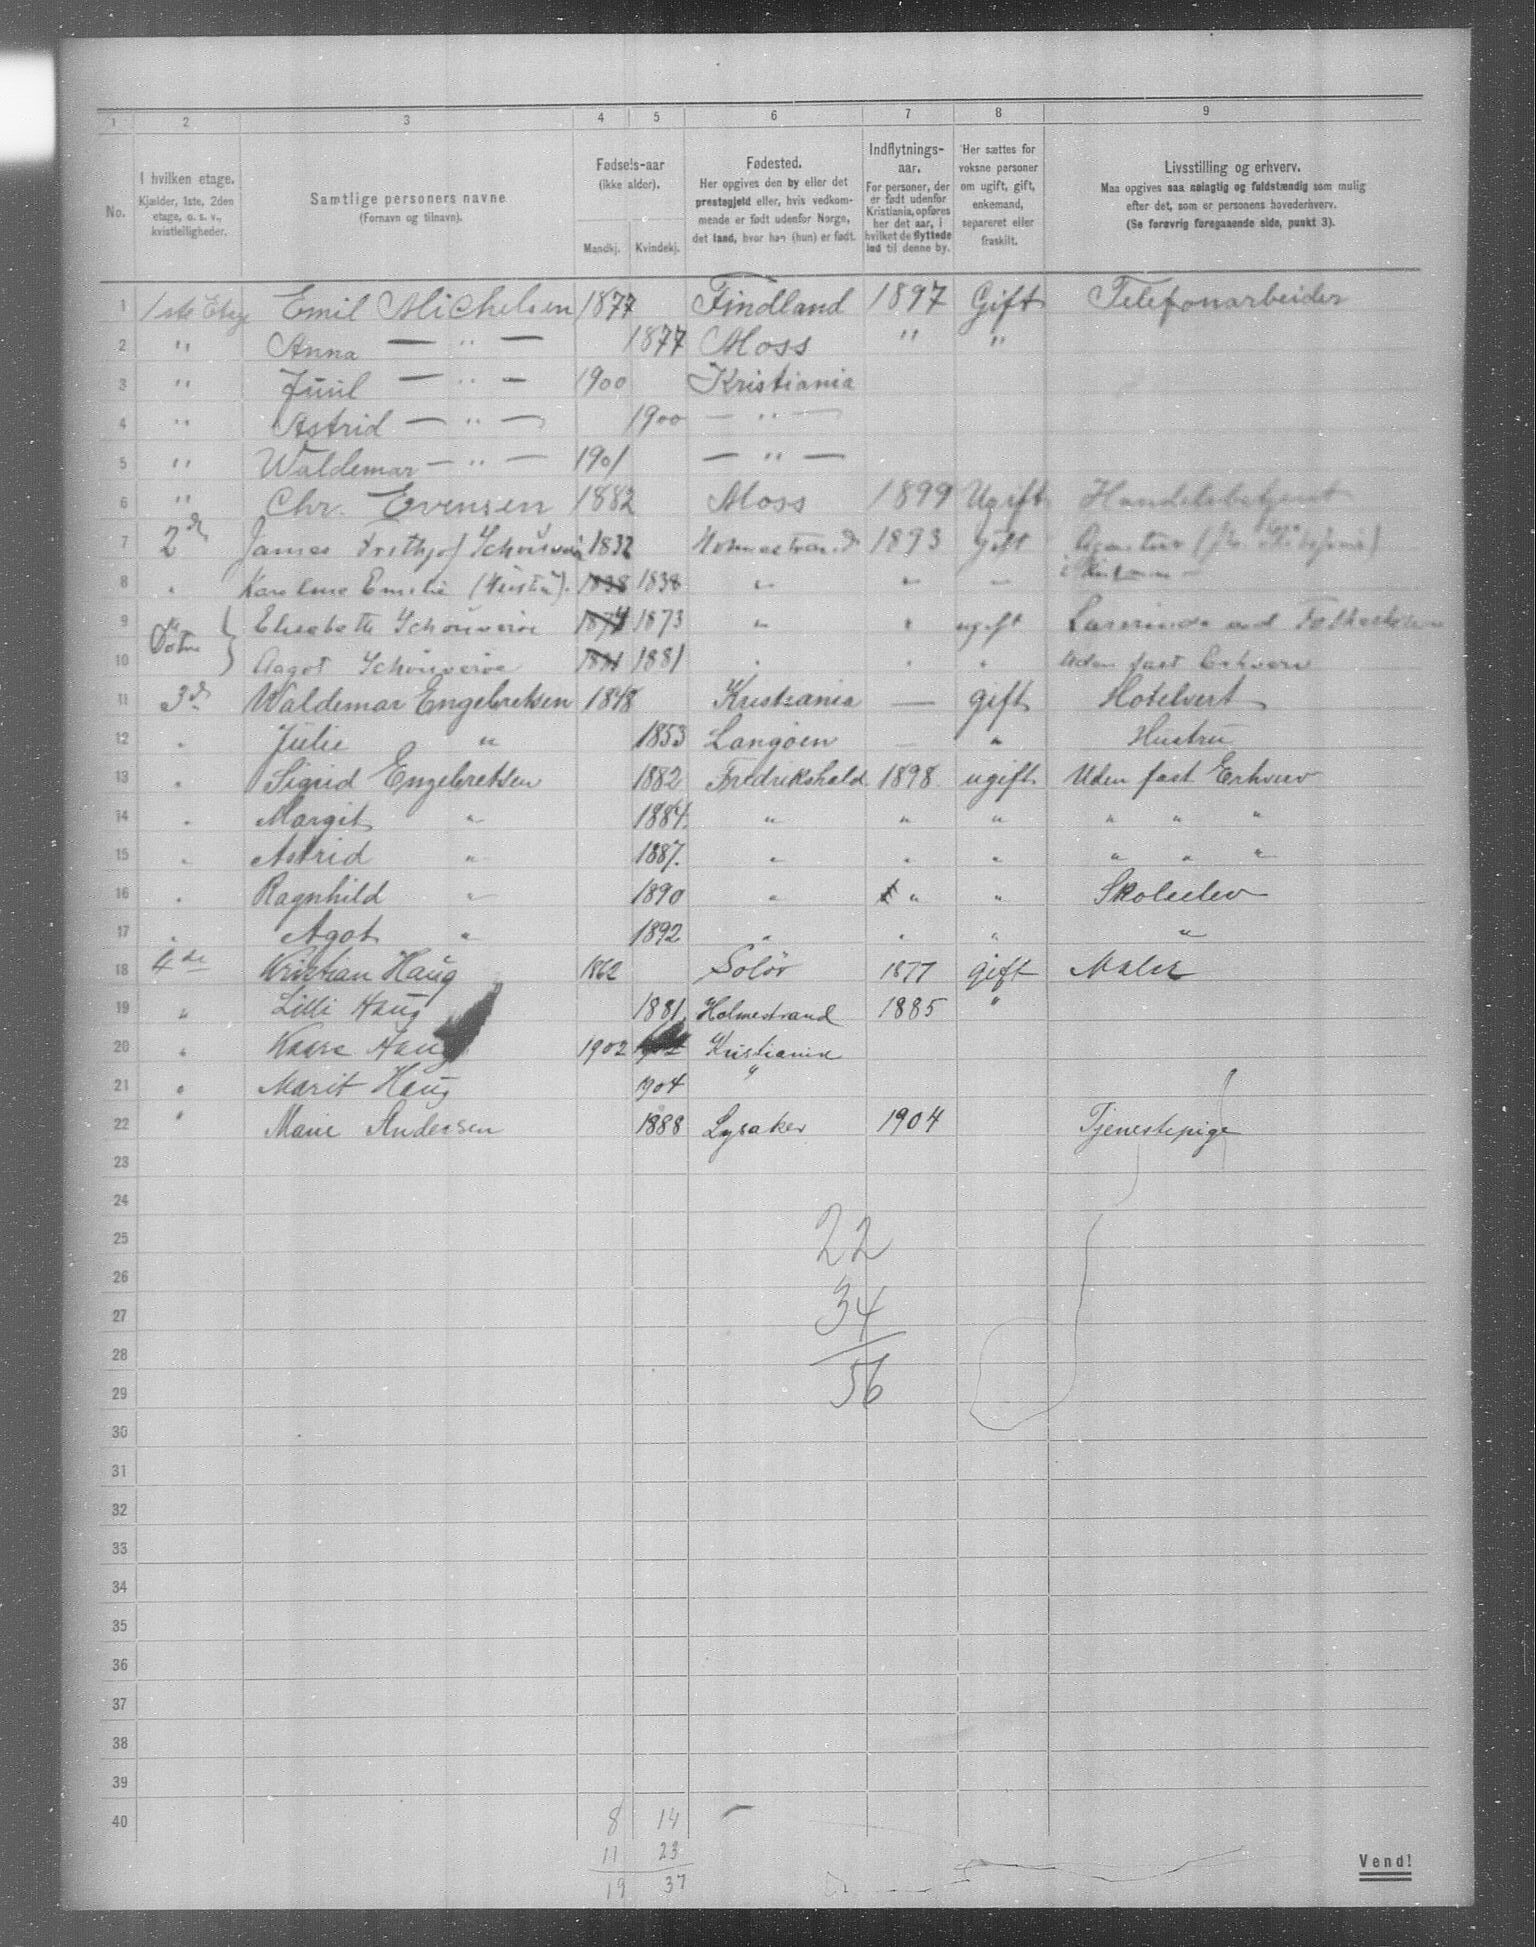 1 2 3 4 5 6 7 8 9
No.
I hvilken etage.
Kjælder, 1ste, 2den
etage, o. s. v.,
kvistleiligheder.
Samtlige personers navne
(Fornavn og tilnavn).
Fødsels-aar
(ikke alder).
Mandkj. Kvindekj.
Fødested.
Her opgives den by eller det
prestegjeld eller, hvis vedkom-
mende er født udenfor Norge,
det land, hvor han (hun) er født.
Indflytnings-
aar.
For personer, der
er født udenfor
Kristiania, opføres
her det aar, i
hvilket de flyttede
ind til denne by.
Her sættes for
voksne personer
om ugift, gift,
enkemand,
separeret eller
fraskilt.
Livsstilling og erhverv.
Maa opgives saa nøiagtig og fuldstændig som mulig
efter det, som er personens hovederhverv.
(Se forøvrig foregaaende side, punkt 3).
1 1ste Etage Emil Michelsen 1877 Findland 1897 Gift Telefonarbeider
2 " Anna — " — 1877 Moss " "
3 " Juul — " — 1900 Kristiania
4 " Astrid — " — 1900 — " —
5 " Waldemar — " — 1901 — " —
6 " Chr. Evensen 1882 Moss 1899 Ugift Handelsbetjent
7 2d James Frithjof 1832 Holmestrand 1893 gift Agentur
8 " Karoline Emilie (Hustru). 1838 1838 " " "
9 Døtre Elisabeth 1874 1873 " " ugift Lærerinde ved
10 Aagot 1881 1881 " " " Uden fast Erhverv
11 3d Waldemar Engebretsen 1848 Kristiania — gift Hotelvert
12 " Julie " 1853 Langøen — " Hustru
13 " Sigrid Engebretsen 1882 Fredrikshald 1898 ugift Uden fast Erhverv
14 " Margit " 1884. " " " " " "
15 " Astrid " 1887. " " " " " "
16 " Ragnhild " 1890 " " " Skoleelev
17 " Agot " 1892 " " " "
18 4de Kristian Haug 1862 Solør 1877 gift Maler
19 " Lilli Haug 1881 Holmestrand 1885 "
20 " Kaare Haug 1902 1902 Kristiania
21 " Marit Haug 1904 "
22 " Marie Andersen 1888 Lysaker 1904 Tjenestepige
23
24
22
25
26
34
27
28
56
29
30
31
32
33
34
35
36
37
38
39
40 8 14
11 23
19 37
Vend!